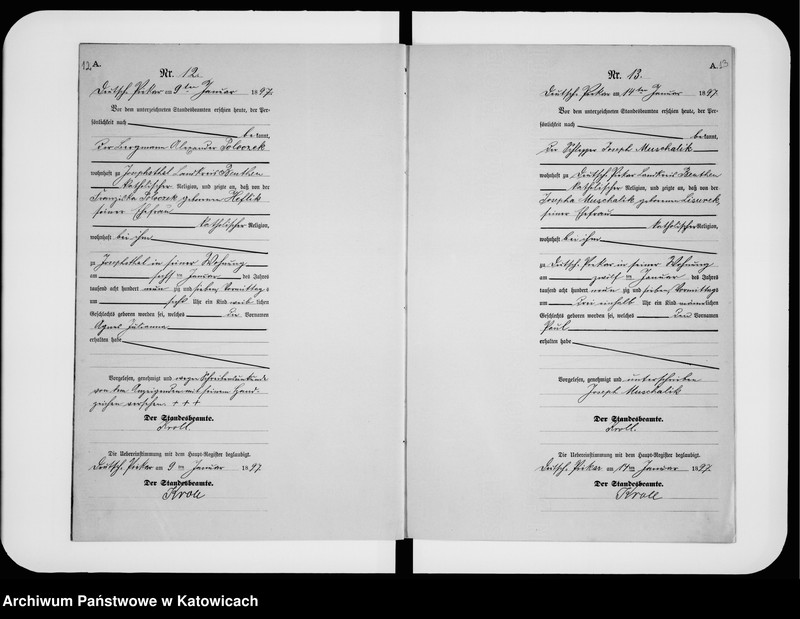 12 A.
Nr. 12.
Deutsch Piekar am 9ten Januar 1897.
Vor dem unterzeichneten Standesbeamten erschien heute, der Per-
sönlichkeit nach
bekannt,
der Bergmann Alexander Poloczek
wohnhaft zu Josephsthal Landkreis Beuthen
katholischer Religion, und zeigte an, daß von der
Franziska Poloczek geborenen Heflik
seiner Ehefrau
katholischer Religion,
wohnhaft bei ihm
zu Josephsthal in seiner Wohnung
am sechs ten Januar des Jahres
tausend acht hundert neun zig und sieben Vormittags
um sechs Uhr ein Kind weib lichen
Geschlechts geboren worden sei, welches den Vornamen
Agnes Julianna
erhalten habe
Vorgelesen, genehmigt und wegen Schreibensunkunde
von dem Anzeigenden mit seinem Hand-
zeichen versehen + + +
Der Standesbeamte.
Kroll.
Die Uebereinstimmung mit dem Haupt-Register beglaubigt.
Deutsch Piekar am 9 ten Januar 1897.
Der Standesbeamte.
Kroll
A. 13
Nr. 13.
Deutsch Piekar am 14ten Januar 1897.
Vor dem unterzeichneten Standesbeamten erschien heute, der Per-
sönlichkeit nach
bekannt,
der Schlepper Joseph Muschalik
wohnhaft zu Deutsch Piekar Landkreis Beuthen
katholischer Religion, und zeigte an, daß von der
Josepha Muschalik geborenen
seiner Ehefrau
katholischer Religion,
wohnhaft bei ihm
zu Deutsch Piekar in seiner Wohnung
am zwölf ten Januar des Jahres
tausend acht hundert neun zig und sieben Vormittags
um drei einhalb Uhr ein Kind männ lichen
Geschlechts geboren worden sei, welches den Vornamen
Paul
erhalten habe
Vorgelesen, genehmigt und unterschrieben
Joseph Muschalik
Der Standesbeamte.
Kroll.
Die Uebereinstimmung mit dem Haupt-Register beglaubigt.
Deutsch Piekar am 14ten Januar 1897.
Der Standesbeamte.
Kroll
Archiwum Państwowe w Katowicach